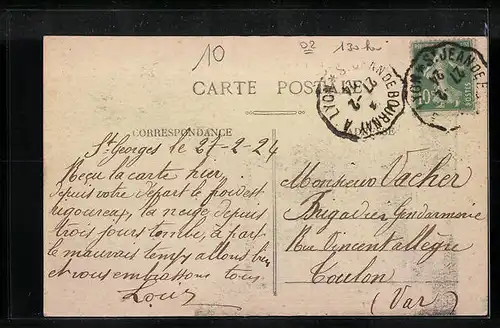 10
02
130
CARTE POSTALE
CORRESPONDANCE
ADRESSE
ST-JEAN DE BOURNAY A LYON
27 -2 24
LYON ST-JEAN DE B
27 -2 24
10
POSTES
St Georges le 27-2-24
Reçu la carte hier,
depuis votre départ le froid est
rigoureux, la neige depuis
trois jours tombe, à part
le mauvais temps allons bien
et vous embrassons tous.
Louis
Monsieur Vacher
Brigadier Gendarmerie
Rue Vincent allègre
Toulon
(Var)